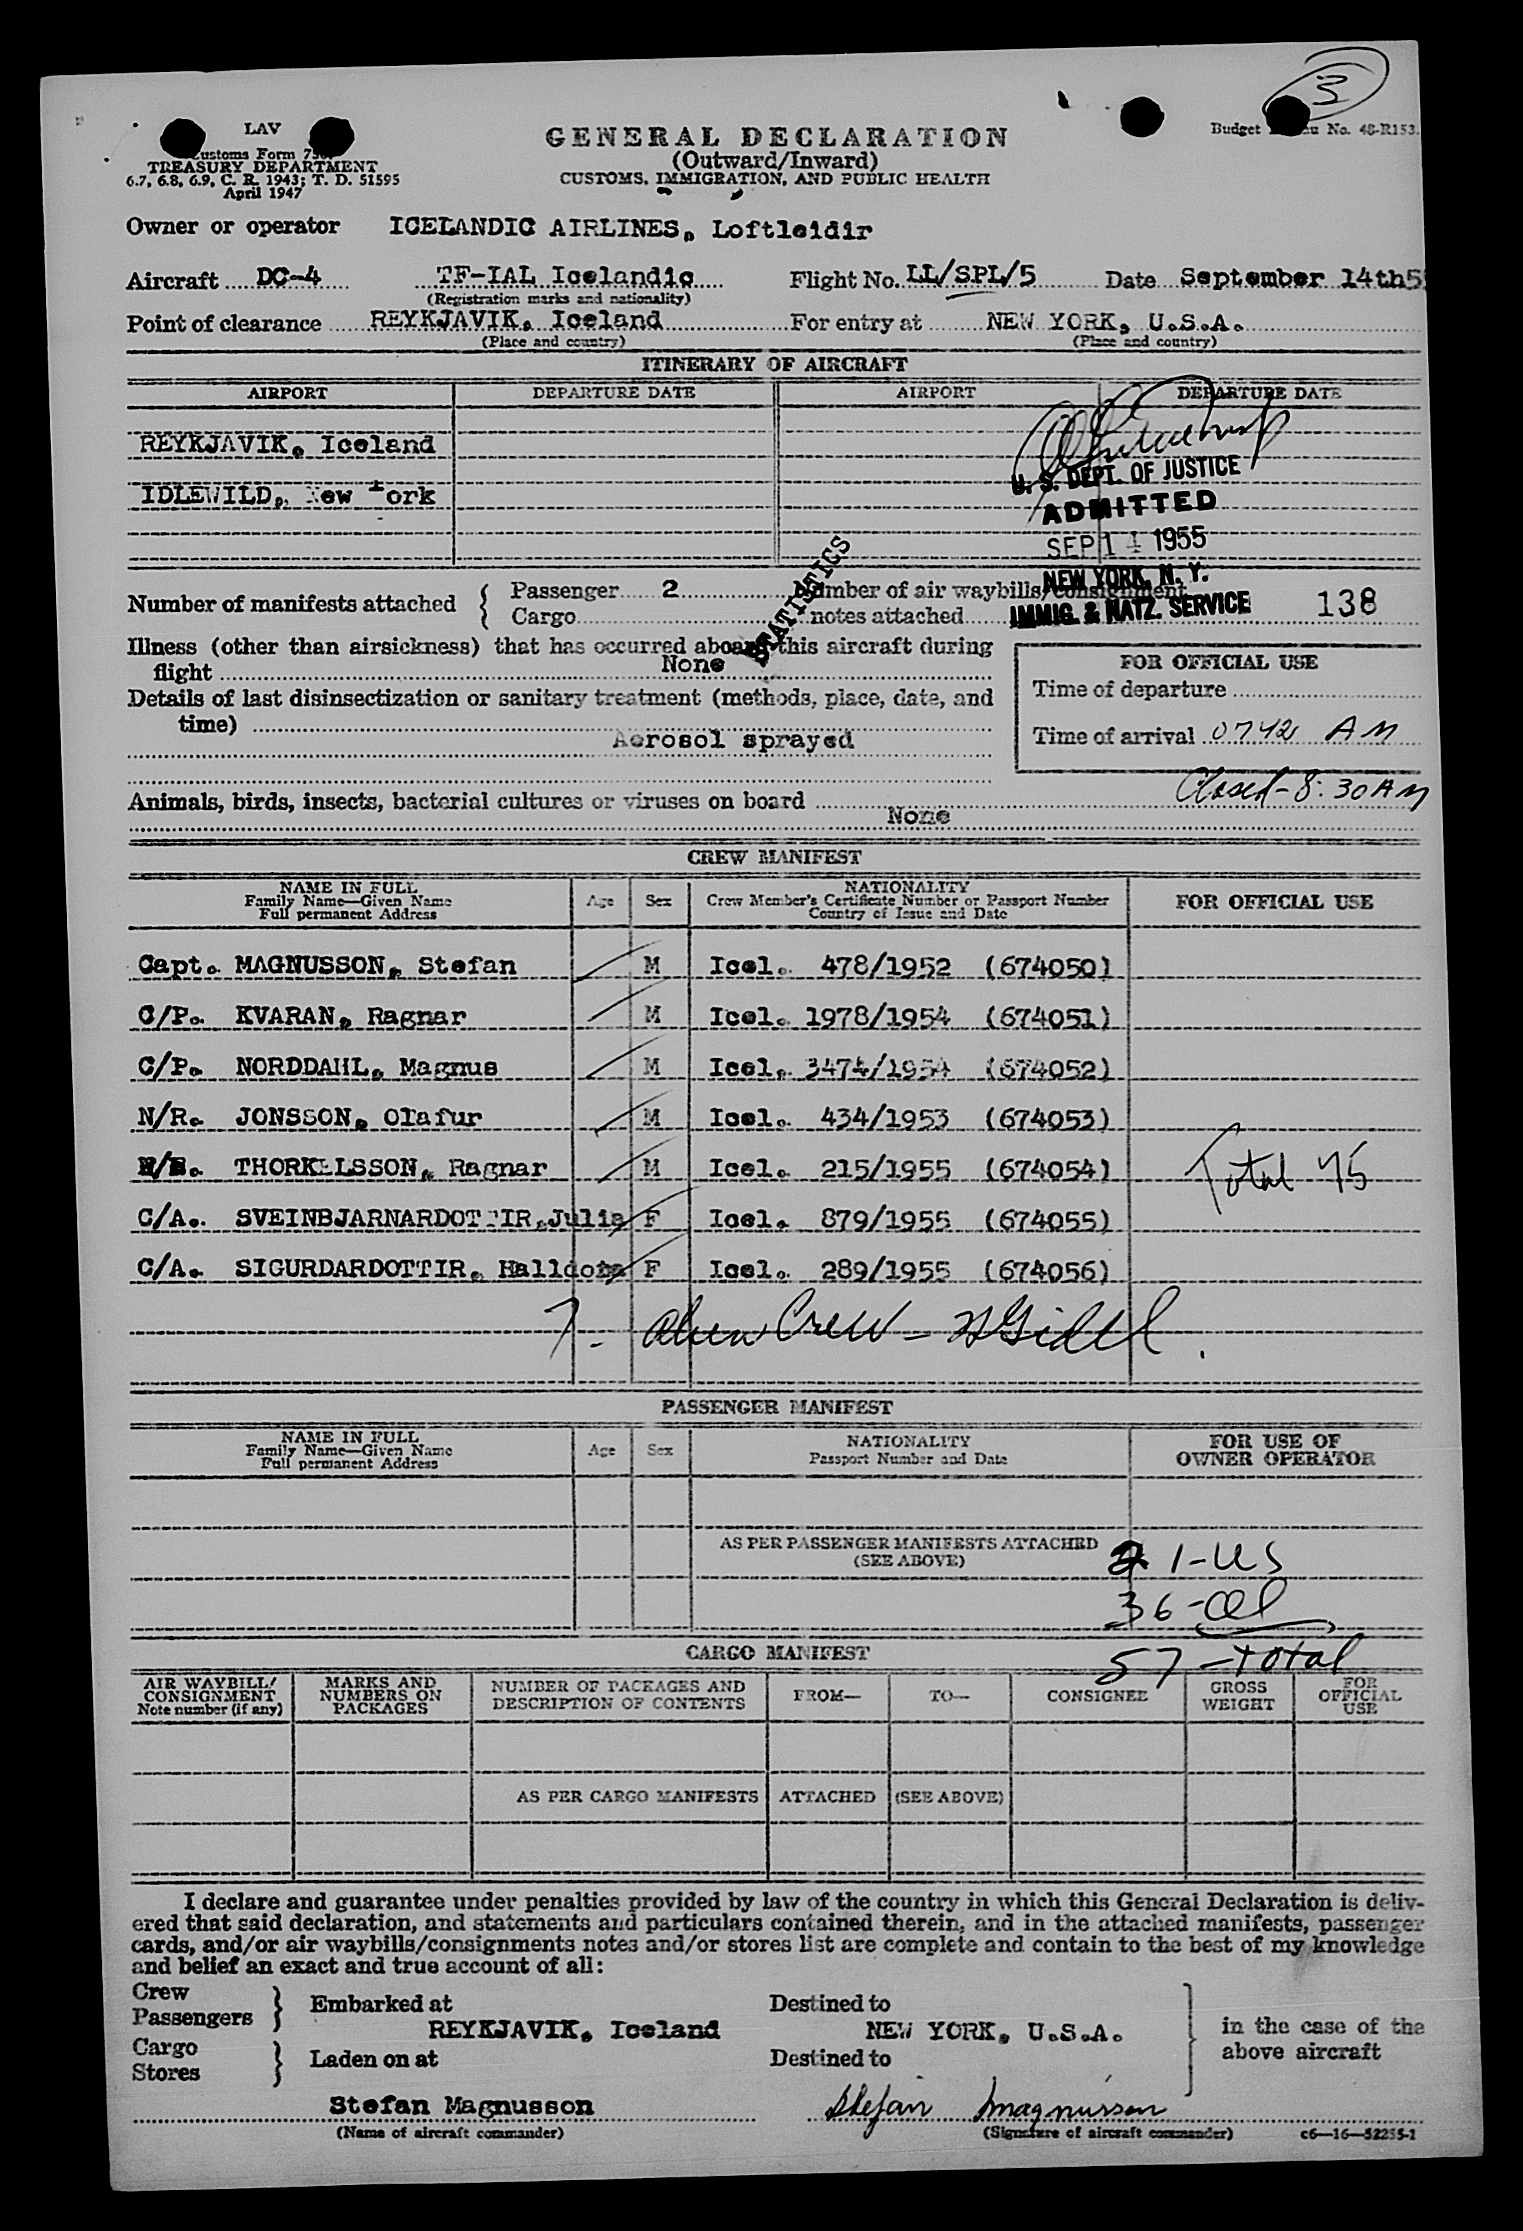 3
LAV
Customs Form 75
TREASURY DEPARTMENT
6.7, 6.8, 6.9, C. R. 1943; T. D. 51595
April 1947
GENERAL DECLARATION
(Outward/Inward)
CUSTOMS, IMMIGRATION, AND PUBLIC HEALTH
Budget No. 48-R153.
Owner or operator ICELANDIC AIRLINES, Loftleidir
Aircraft DC-4 TF-IAL Icelandic Flight No. LL/SPL/5 Date September 14th5
(Registration marks and nationality)
Point of clearance REYKJAVIK, Iceland For entry at NEW YORK, U.S.A.
(Place and country) (Place and country)
ITINERARY OF AIRCRAFT
AIRPORT DEPARTURE DATE AIRPORT DEPARTURE DATE
REYKJAVIK, Iceland
IDLEWILD, New York
U. S. DEPT. OF JUSTICE
ADMITTED
SEP 14 1955
NEW YORK, N. Y.
IMMIG. & NATZ. SERVICE
STATISTICS
Number of manifests attached { Passenger 2 Number of air waybills/consignment
Cargo notes attached 138
Illness (other than airsickness) that has occurred aboard this aircraft during
flight None
Details of last disinsectization or sanitary treatment (methods, place, date, and
time)
Aerosol sprayed
FOR OFFICIAL USE
Time of departure
Time of arrival 0742 AM
Closed - 8:30 AM
Animals, birds, insects, bacterial cultures or viruses on board
None
CREW MANIFEST
NAME IN FULL
Family Name—Given Name
Full permanent Address
Age Sex
NATIONALITY
Crew Member's Certificate Number or Passport Number
Country of Issue and Date
FOR OFFICIAL USE
Capt. MAGNUSSON, Stefan M Icel. 478/1952 (674050)
C/P. KVARAN, Ragnar M Icel. 1978/1954 (674051)
C/P. NORDDAHL, Magnus M Icel. 3474/1954 (674052)
N/R. JONSSON, Olafur M Icel. 434/1953 (674053)
THORKELSSON, Ragnar M Icel. 215/1955 (674054)
Total 45
C/A. SVEINBJARNARDOTTIR, Julia F Icel. 879/1955 (674055)
C/A. SIGURDARDOTTIR, Halldora F Icel. 289/1955 (674056)
7 - Alien Crew -
PASSENGER MANIFEST
NAME IN FULL
Family Name—Given Name
Full permanent Address
Age Sex
NATIONALITY
Passport Number and Date
FOR USE OF
OWNER OPERATOR
AS PER PASSENGER MANIFESTS ATTACHED
(SEE ABOVE)
1-US
36-
57-total
CARGO MANIFEST
AIR WAYBILL/
CONSIGNMENT
Note number (if any)
MARKS AND
NUMBERS ON
PACKAGES
NUMBER OF PACKAGES AND
DESCRIPTION OF CONTENTS
FROM— TO— CONSIGNEE
GROSS
WEIGHT
FOR
OFFICIAL
USE
AS PER CARGO MANIFESTS ATTACHED (SEE ABOVE)
I declare and guarantee under penalties provided by law of the country in which this General Declaration is deliv-
ered that said declaration, and statements and particulars contained therein, and in the attached manifests, passenger
cards, and/or air waybills/consignments notes and/or stores list are complete and contain to the best of my knowledge
and belief an exact and true account of all:
Crew
Passengers } Embarked at Destined to
REYKJAVIK, Iceland NEW YORK, U.S.A.
Cargo
Stores } Laden on at Destined to
in the case of the
above aircraft
Stefan Magnusson Stefan Magnusson
(Name of aircraft commander) (Signature of aircraft commander) c6—16—52255-1